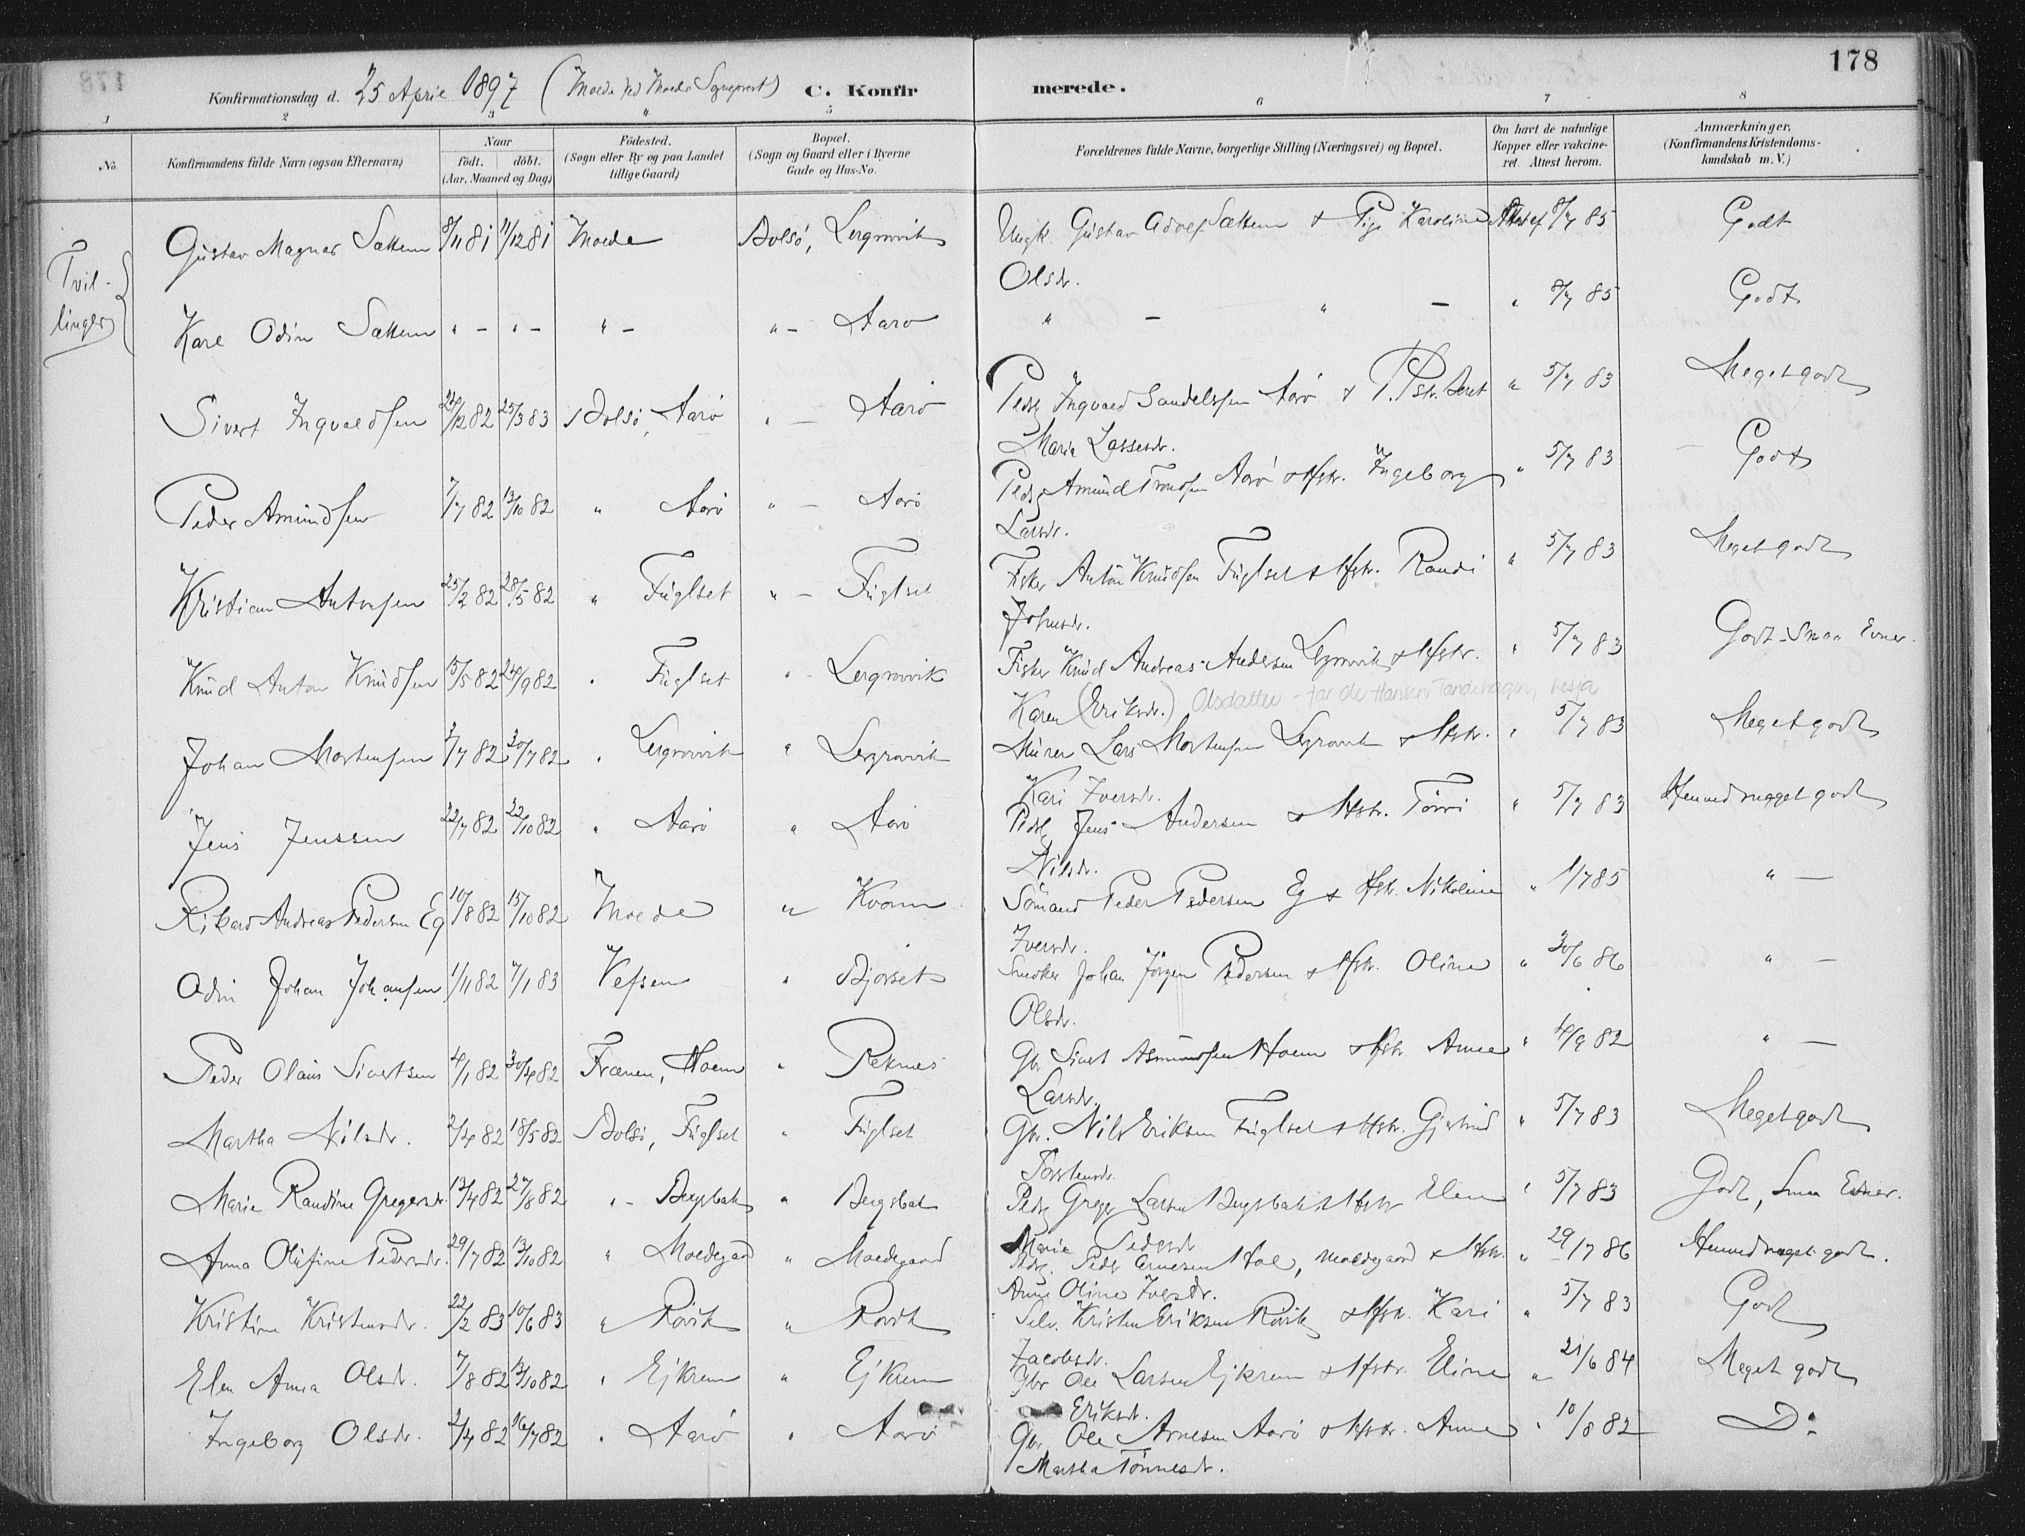 178
Konfirmationsdag d. 25 April 1897 (Molde ved Molde Sogneprest) C. Konfir merede.
1 2 3 4 5 6 7 8
No. Konfirmandens fulde Navn (ogsaa Efternavn) Naar födt. döbt. (Aar, Maaned og Dag) Födested. (Sogn eller By og paa Landet tillige Gaard) Bopæl. (Sogn og Gaard eller i Byerne Gade og Hus-No. Forældrenes fulde Navne, borgerlige Stilling (Næringsvei) og Bopæl. Om havt de naturlige Kopper eller vakcineret. Attest herom. Anmærkninger. (Konfirmandens Kristendomskundskab m. V.)
Tvillinger
Gustav Magnus Sættem 8/11 81 11/12 81 Molde Bolsö, Lergrovik Ungk. Gustav Adolf Sættem & Pige Karoline Olsdr. Attest af 8/7 85 Godt
Kare Odin Sættem " – " – " – " – Aarö " – " – " 8/7 85 Godt
Sivert Ingvaldsen 22/12 82 25/3 83 Bolsö, Aarö " – Aarö Pedsg Ingvald Sandelssen Aarö & Marie Lassesdr. " 5/7 83 Meget godt
Peder Amundsen 7/7 82 13/10 82 " Aarö " – Aarö Pedsg Amund Aarö & Hstr. Ingeborg Larsdr. " 5/7 83 Godt
Kristian Antonsen 25/2 82 28/5 82 " Fuglset " – Fuglset Fisker Anton Knudsen Fuglset & Hstr. Randi Johnsdr. " 5/7 83 Meget godt
Knud Anton Knudsen 15/5 82 24/9 82 " Fuglset " Lergrovik Fisker Knud Andreas Andersen Lergrovik & Hstr. Karen (Eriksdr.) Olsdatter " 5/7 83 Godt – Smaa Evner.
Johan Mortensen 3/7 82 30/7 82 " Lergrovik " Lergrovik Murer Lars Mortensen Lergrovik & Hstr. Kari Iversdr. " 5/7 83 Meget godt
Jens Jenssen 22/7 82 22/10 82 " Aarö " Aarö Pedsg Jens Andersen & Hstr. Törri Nilsdr. " 5/7 83 Henved meget godt
Rikard Andreas Pedersen Eg 10/8 82 15/10 82 Molde " Kvam Sömand Peder Pedersen Eg & Hstr. Nikoline Iversdr. " 1/7 85 " –
Odin Johan Johansen 1/11 82 7/1 83 Vefsen " Björset Snedker Johan Jörgen Pedersen & Hstr. Oline Olsdr. " 30/6 86 " –
Peder Olaus Sivertsen 4/1 82 30/4 82 Frænen, Hoem " Reknes Gbr Sivert Asmundsen Hoem & Hstr. Anne Larsdr. " 4/9 82 " –
Martha Nilsdr. 2/4 82 18/5 82 Bolsö, Fuglset " Fuglset Gbr. Nils Eriksen Fuglset & Hstr. Gjertrud Torstensdr. " 5/7 83 Meget godt
Marie Randine Gregersdr. 13/4 82 27/8 82 " – Bergsbak " Bergsbak Pedsg Larsen Bergsbak & Hstr Elen Marie Pedersdr " 5/7 83 Godt, Smaa Evner.
Anna Olufine Pedersdr. 29/7 82 13/10 82 " Moldegaard " Moldegaard Pedsg. Peder Arnesen Hol, Moldegaard & Hstr. Anne Oline Iversdr. " 29/7 86 Henved meget godt.
Kristine Kristensdr. 22/2 83 10/6 83 " Rövik " Rövik Selv. Kristen Eriksen Rövik & Hstr. Kari Jacobsdr. " 5/7 83 Godt
Elen Anna Olsdr. 7/8 82 13/10 82 " Ejkrem " Ejkrem Gbr Ole Larsen Ejkrem & Hstr. Eline Eriksdr. " 21/6 84 Meget godt
Ingeborg Olsdr. 2/4 82 16/7 82 " Aarö " Aarö Gbr Ole Arnesen Aarö & Hstr. Anne Martha Tönnesdr. " 10/8 82 Do